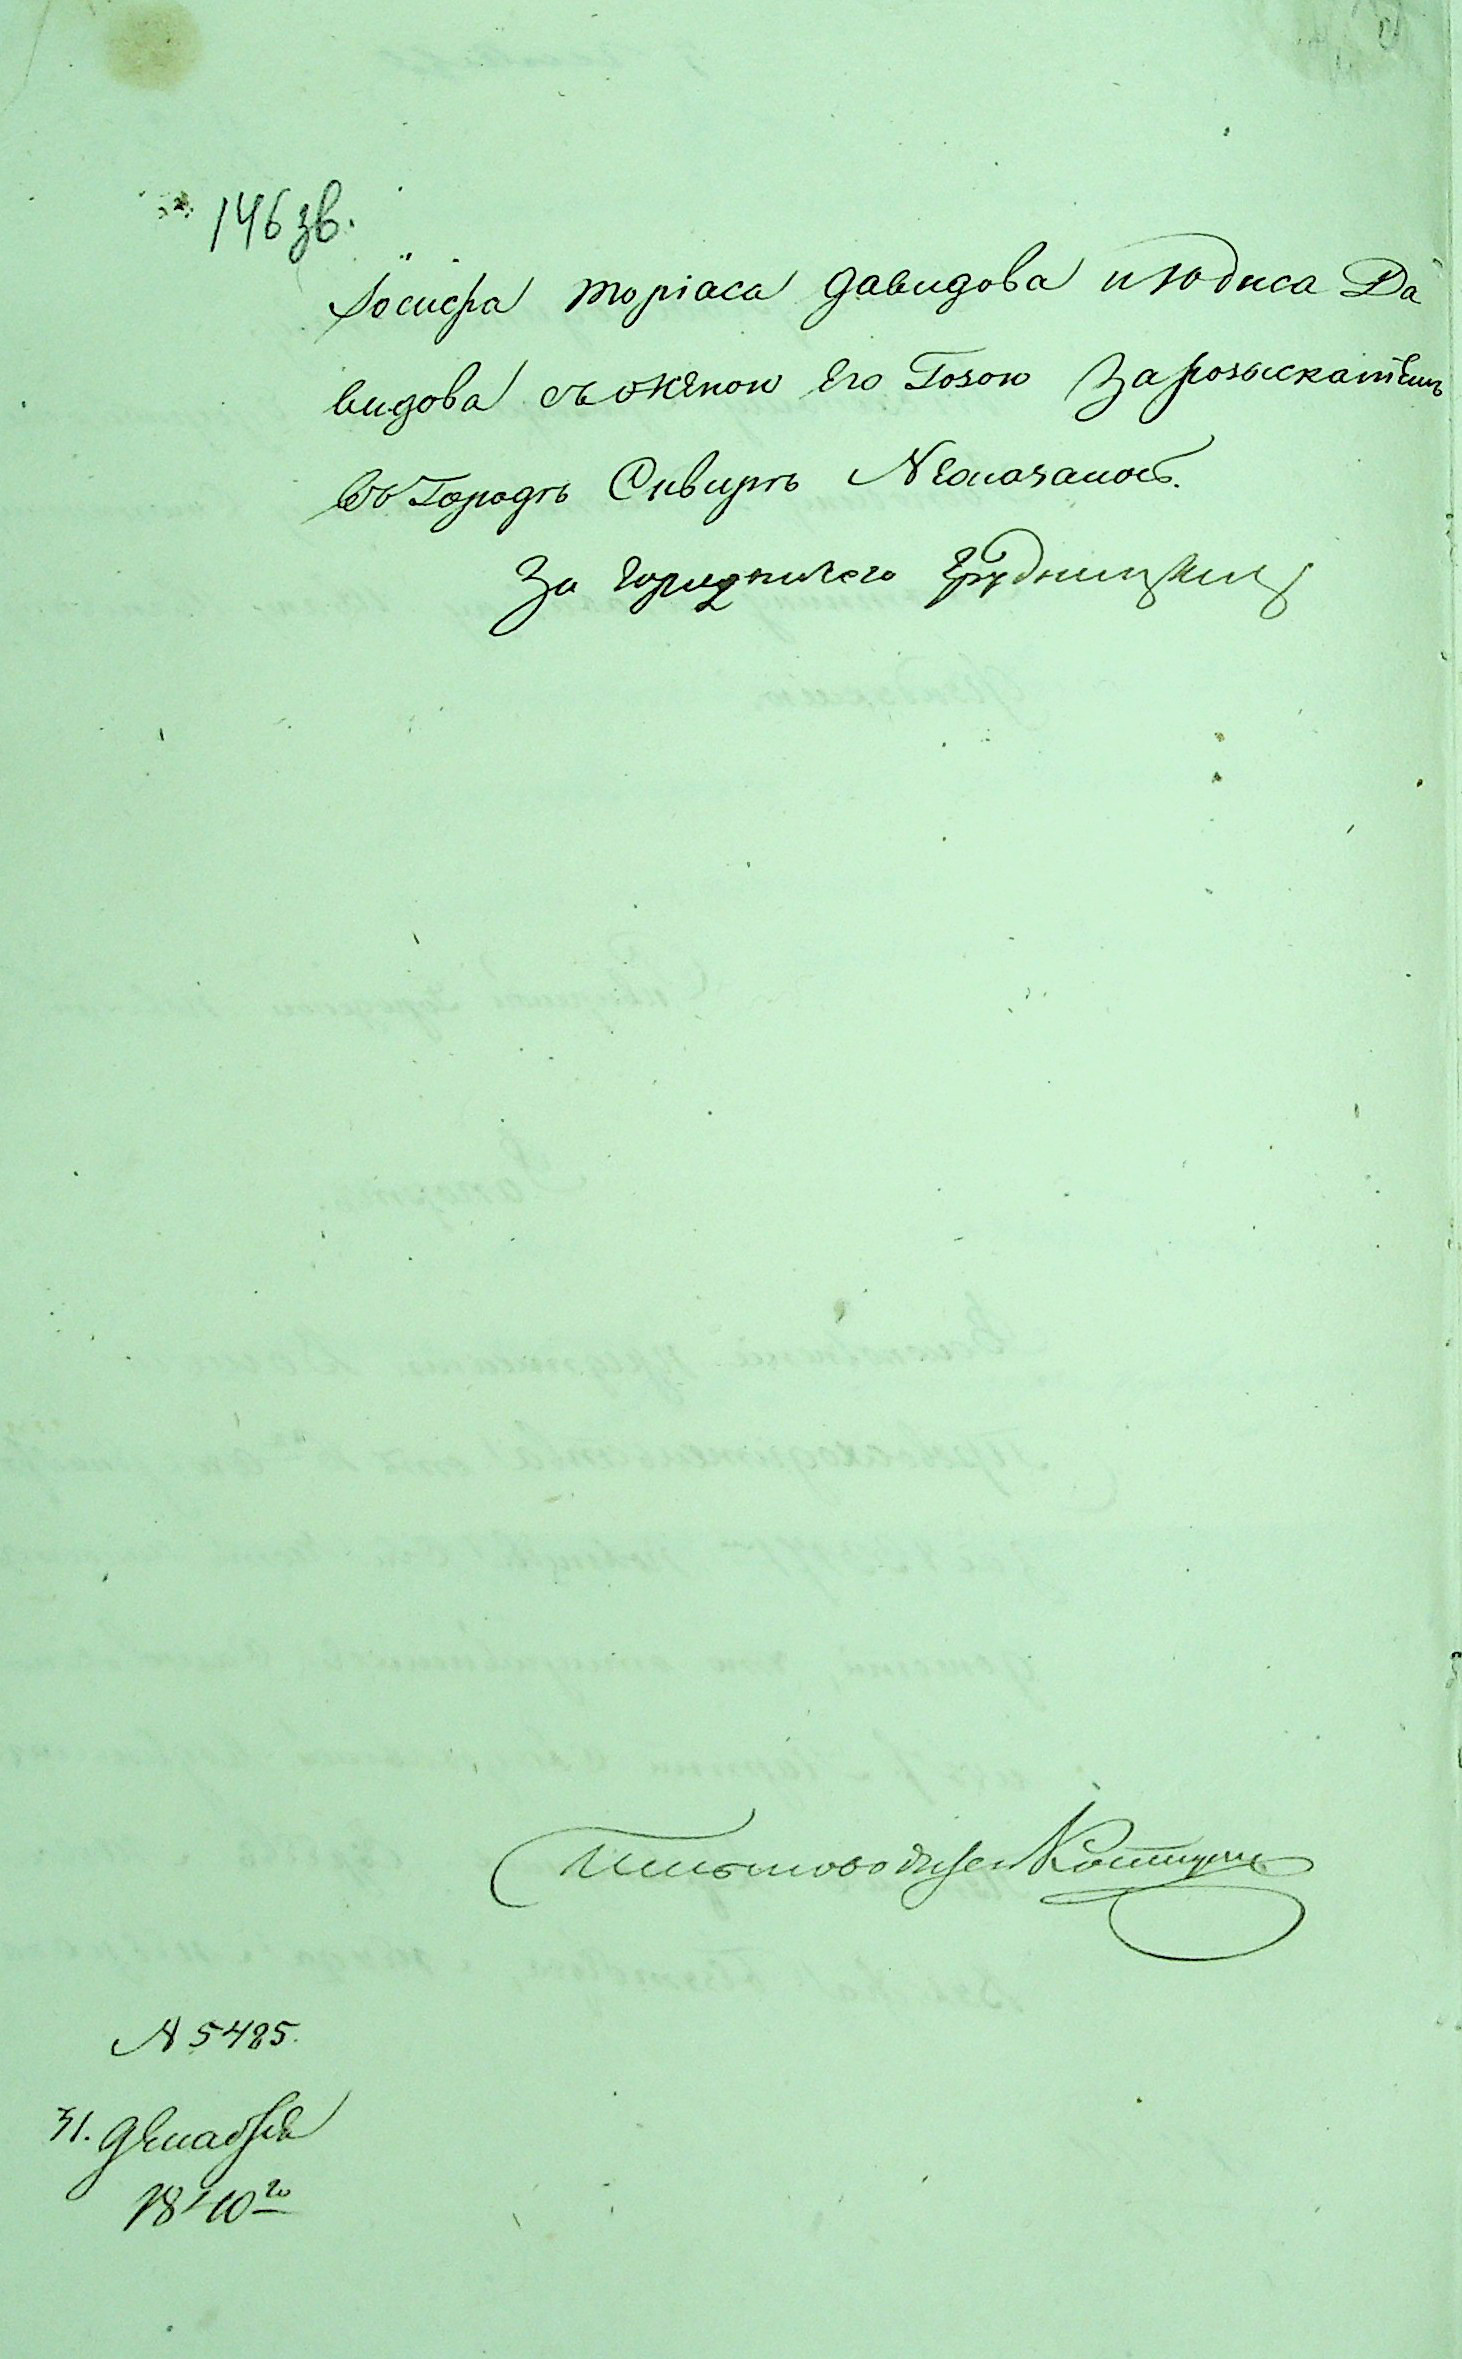 146 зв.
Іосифа Моріаса Давидова и Юдиса Да
видова съ женою его Гозою За розысканіемъ
въ Городѣ Сквирѣ Неоказалось.
За городничего Грудницкий
Письмоводитель
№ 5485.
31. декабря
1840го